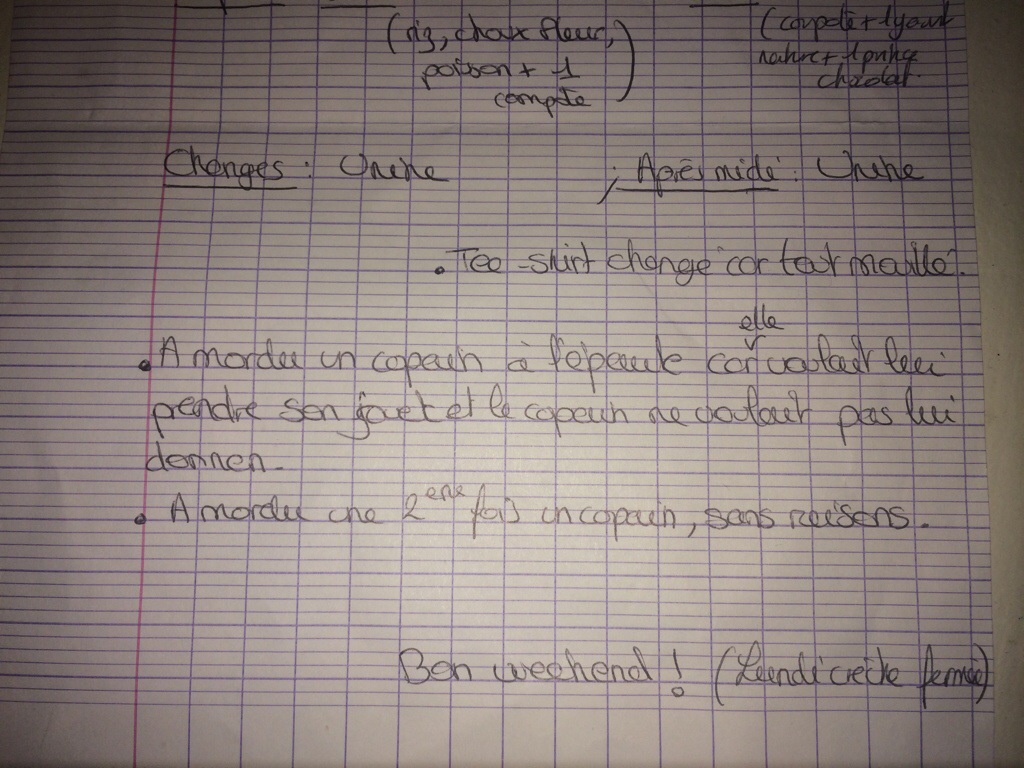 (riz, choux fleur,
poisson + 1
compote)
(compote + 1 yaourt
nature + 1
chocolat.
Changes : Urine ; Après midi : Urine
• Tee-shirt changé car tout mouillé.
• A mordu un copain à l'épaule car elle voulait lui
prendre son jouet et le copain ne voulait pas lui
donner.
• A mordu une 2eme fois un copain, sans raisons.
Bon weekend ! (Lundi crèche fermée)